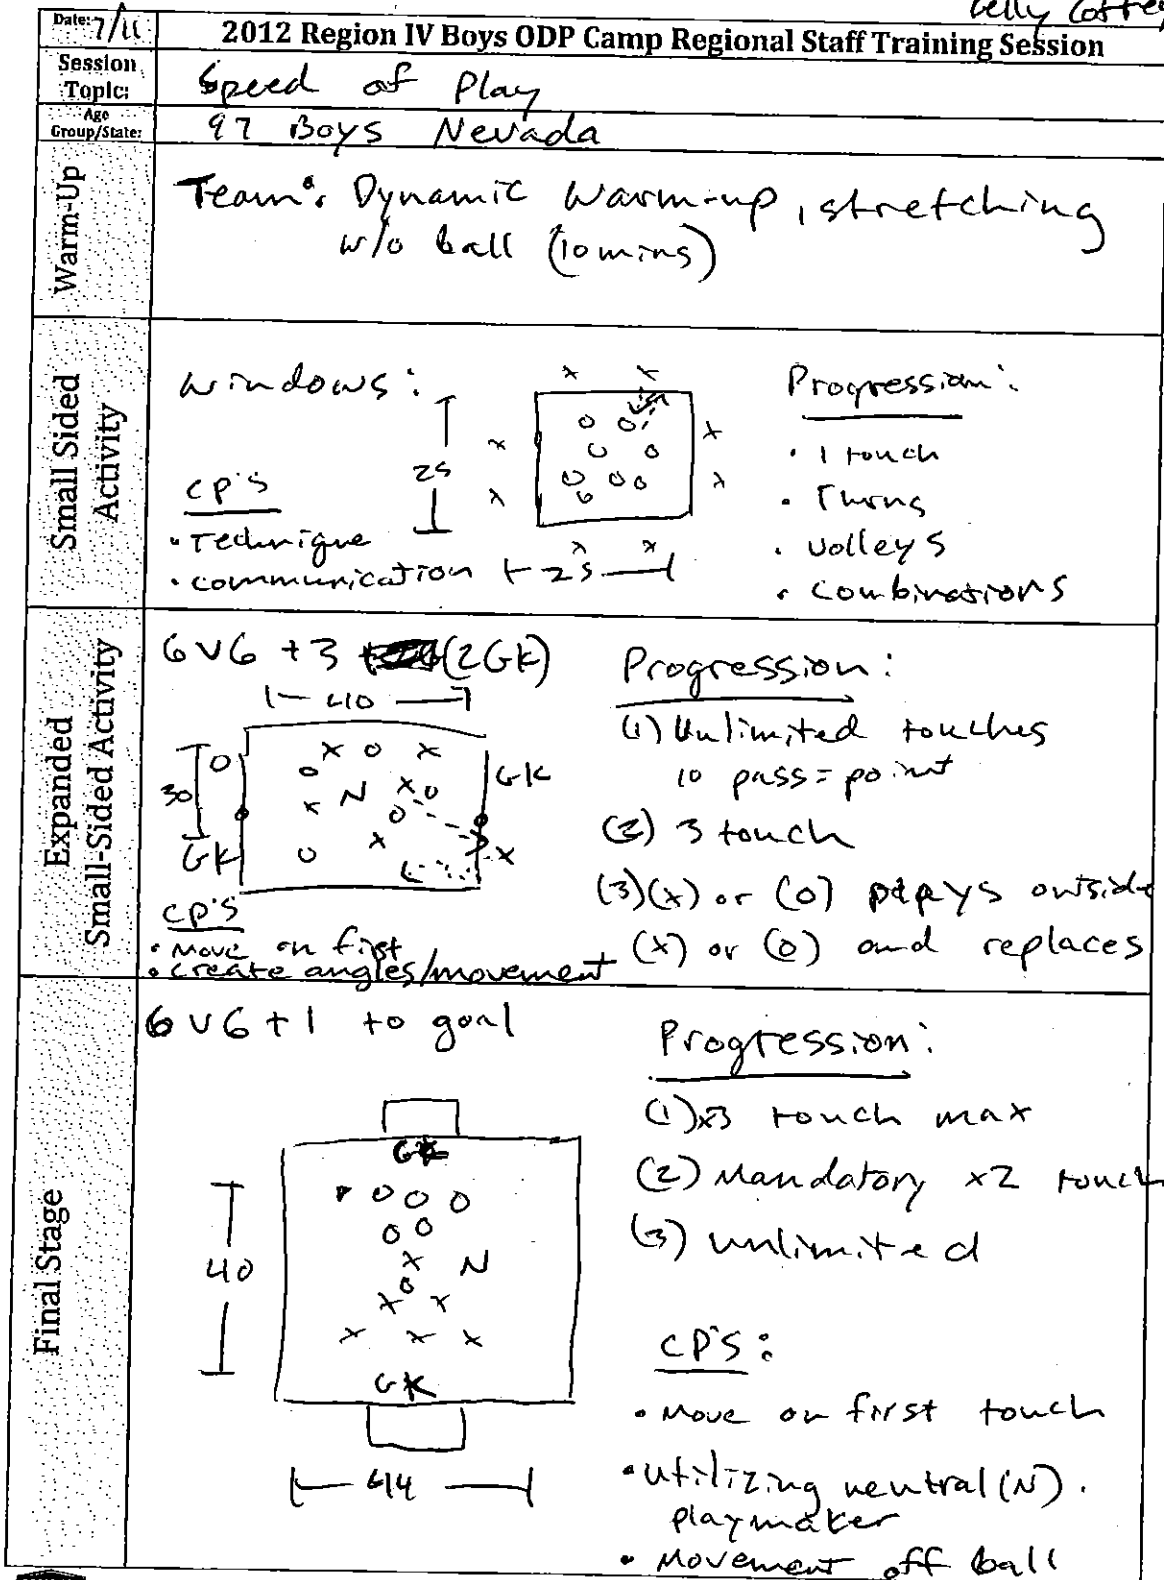 Kelly Coffey
Date: 7/11
2012 Region IV Boys ODP Camp Regional Staff Training Session
Session Topic: Speed of Play
Age Group/State: 97 Boys Nevada
Warm-Up
Team: Dynamic Warm-up, stretching
w/o ball (10 mins)
Small Sided
Activity
Windows:
25
CP'S
• Technique
• communication
25
x x
x x x x
x x
O O O O O O O O
Progression:
• 1 touch
• Turns
• Volleys
• Combinations
Expanded
Small-Sided Activity
6v6 +3 (2GK)
40
30
O X O X GK
O X N X O
O X
GK O X
CP'S
• Move on first
• create angles/movement
Progression:
(1) Unlimited touches
10 pass = point
(2) 3 touch
(3)(x) or (o) plays outside
(x) or (o) and replaces
Final Stage
6v6+1 to goal
GK
O O O
O O
X N
O
X X
X X X
GK
40
44
Progression:
(1) x3 touch max
(2) Mandatory x2 touch
(3) unlimited
CP'S:
• Move on first touch
• utilizing neutral (N).
playmaker
• Movement off ball